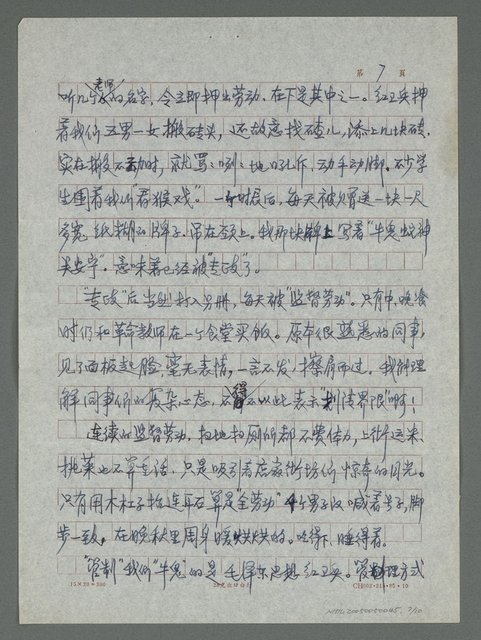 第 7 頁
老师
听几个的名字，令立即押出劳动。在下是其中之一。红卫兵押
着我们五男一女搬砖头，还故意找碴儿，添上几块砖，
实在搬不动时，就骂骂咧咧地吆斥，动手动脚。不少学
生围着我们“看猴戏”。一时辰后，每天被贯送一块一尺
多宽纸糊的牌子，吊在颈上。我那块牌上写着“牛鬼蛇神
吴安宇”，意味着已经被“专政”了。
“专政”后当然打入另册，每天被“监督劳动”。只有中、晚餐
时们和革命教师在一个食堂买饭。原本很熟悉的同事，
见了面板起脸，毫无表情，一言不发，擦肩而过。我能理
解同事们的复杂心态，不得不以此表示“划清界限”啊！
连续的监督劳动，扫地扫厕所都不费体力，上街运米、
挑菜也不算重活，只是吸引着店家街坊们惊奇的目光。
只有用木杠子抬连耳石算是全劳动”，4个男子汉喊着号子，脚
步一致，在晚秋里周身暖烘烘的。吃得下，睡得着。
“管制”我们“牛鬼”的是毛泽东思想红卫兵。管理方式
15×20=300
NMTL20050050045, 7/10